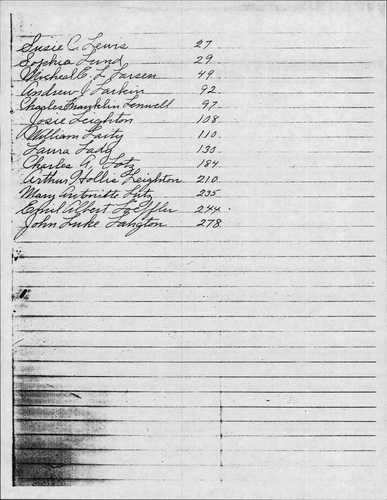 Susie C. Lewis 27
Sophia Lund 29
Micheal E. L Larsen 49
Andrew J Larkin 92
Charles Franklin Lennell 97
Josie Leighton 108
William Laity 110
Laura Ladg 130
Charles A. Lotz 184
Arthur Hollis Leighton 210
Mary Antoinette Lutz 235
Emil Albert Loeffler 244
John Luke Langton 278